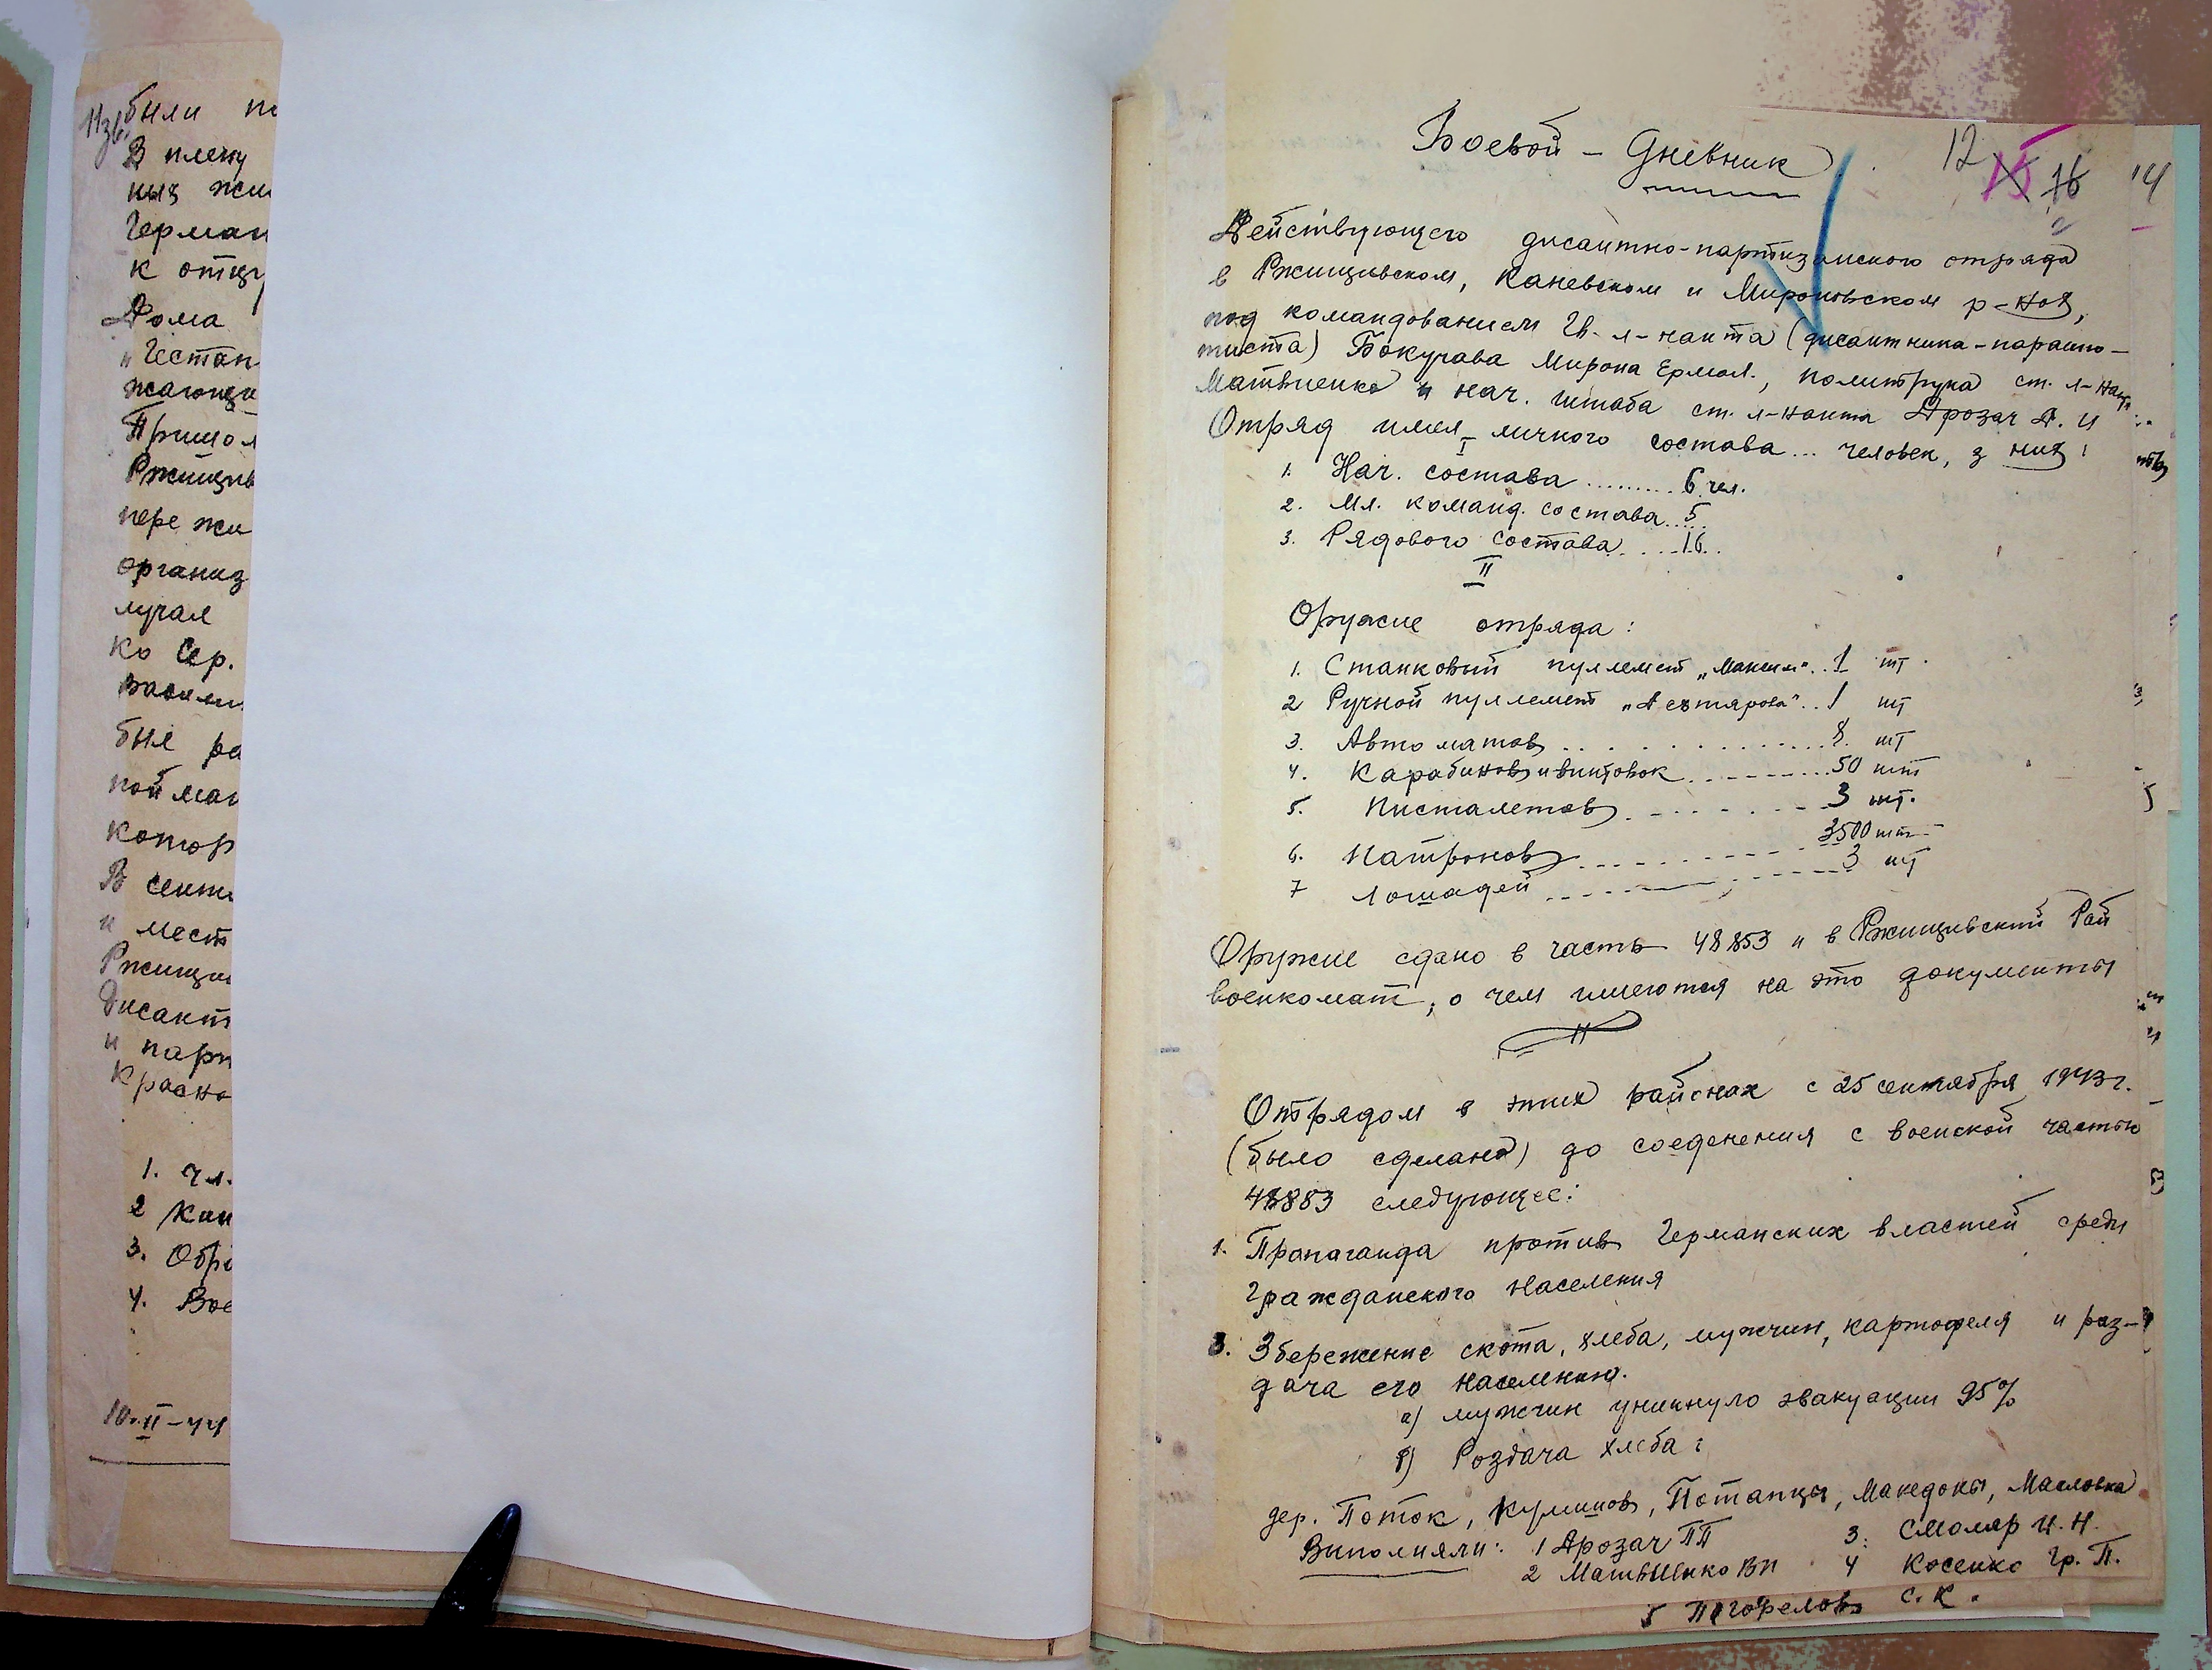 Изв.
были по
В плену
ных жи
Герман
к отцу
Дома
"Гестап
жающи
Пришол
Ржищив
пере жи
организ
лучал
ко Сер.
Васили
был ра
пойман
котор
В сентя
и мест
Ржищи
дисант
и парт
Красно
1. Чл.
2 Кан
3. Обра
4. Вое
10.II-44
Боевой - Дневник
12 15 16 14
Действующего дисантно-партизанского отряда
в Ржищивском, Каневском и Мироновском р-нох,
под командованием Гв. л-нанта (дисантника-парашю-
тиста) Бокучава Мирона Ермол., политрука ст. л-нан
Матвиенко и нач. штаба ст. л-нанта Дрозач А. И
Отряд имел личного состава... человек, з них:
I
1. Нач. состава ......... 6 чел.
2. Мл. команд. состава..... 5
3. Рядового состава.....16..
II
Оружие отряда:
1. Станковый пулемет „Максим"..1 шт.
2 Ручной пулемет „Дехтярова"..1 шт
3. Автоматов ............8. шт
4. Карабинов и винтовок .......50 шт
5. Писталетов ........3 шт.
6. Патронов .......... 3500 шт
7 Лошадей ......... 3 шт
Оружие сдано в часть 48853 и в Ржищивский Рай
военкомат, о чем имеются на это документы
Отрядом в этих районах с 25 сентября 1943 г.
(было сделано) до соеденения с воинской частью
48883 следующее:
1. Пропаганда против Германских властей среди
Гражданского населения
3. Збережение скота, хлеба, мужчин, картофеля и раз-
дача его населению.
а) мужчин уникнуло эвакуации 95%
б) Роздача хлеба:
дер. Поток, Кулишов, Потапцы, Македоны, Масловка
Виполняли: 1 Дрозач ПП 3. Смоляр И. Н.
2 Матвиенко ВИ 4 Косенко Гр. П.
5 Погорелов С. К.